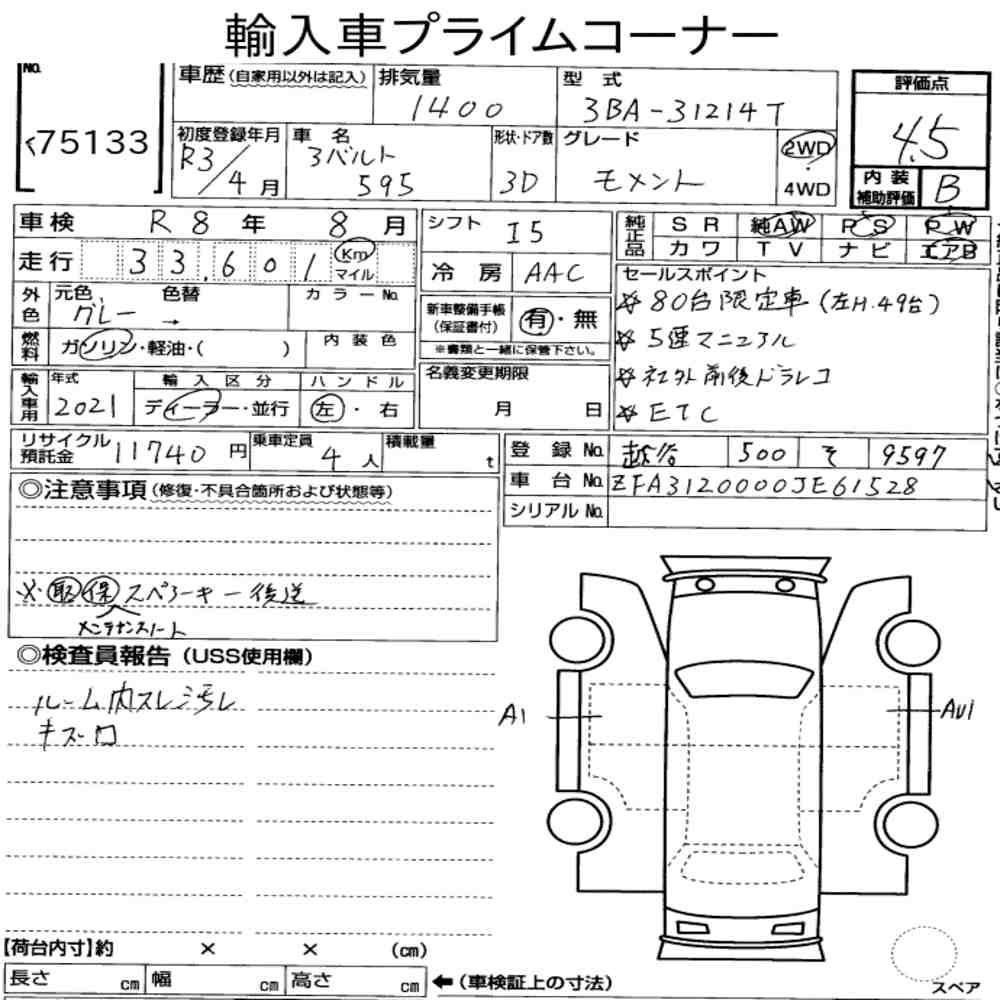 輸入車プライムコーナー
No.
75133
車歴 (自家用以外は記入)
排気量
1400
型 式
3BA-31214T
評価点
4.5
内装補助評価 B
初度登録年月
R3/4月
車 名
アバルト
595
形状・ドア数
3D
グレード
モメント
2WD
4WD
車検 R8年 8月
走行 33,601 Km マイル
外色 元色 グレー → 色替 カラーNo.
燃料 ガソリン・軽油・( ) 内装色
輸入車用 年式 2021 輸入区分 ディーラー・並行 ハンドル 左・右
リサイクル預託金 11740円 乗車定員 4人 積載量 t
シフト I5
冷 房 AAC
新車整備手帳(保証書付) 有・無
※書類と一緒に保管下さい。
名義変更期限
月 日
純正品 SR 純AW PS PW
カワ TV ナビ エアB
セールスポイント
☆80台限定車(左H.49台)
☆5速マニュアル
☆社外前後ドラレコ
☆ETC
登 録 No. 越谷 500 そ 9597
車 台 No. ZFA3120000JE61528
シリアルNo.
◎注意事項(修復・不具合箇所および状態等)
※取保スペアーキー後送
メンテナンスノート
◎検査員報告(USS使用欄)
ルーム内スレ汚レ
キズ
A1
AU1
【荷台内寸】約 × × (cm)
長さ cm 幅 cm 高さ cm ←(車検証上の寸法)
スペア